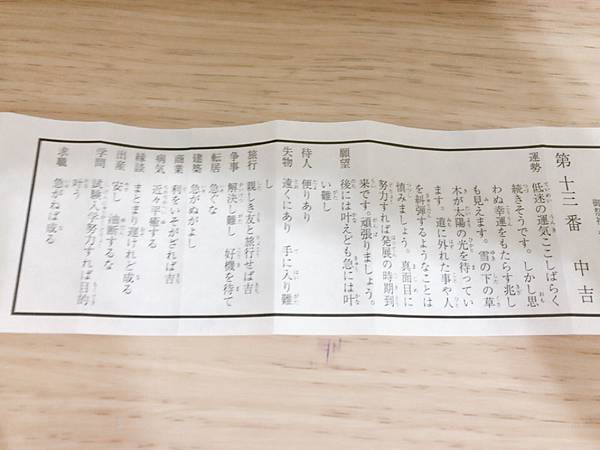 第十三番 中吉
運勢
低迷の運気ここしばらく
続きそうです。しかし思
わぬ幸運をもたらす兆し
も見えます。雪の下の草
木が太陽の光を待ってい
ます。道に外れた事や人
を糾弾するようなことは
慎みましょう。真面目に
努力すれば発展の時期到
来です。頑張りましょう。
願望 後には叶えども急には叶
い難し
待人 便りあり
失物 遠くにあり 手に入り難
し
旅行 親しき友と旅行せば吉
争事 解決し難し 好機を待て
転居 急ぐな
建築 急がぬがよし
商業 利をいそがざれば吉
病気 近々平癒する
縁談 まとまり遅けれど成る
出産 安し 油断するな
学問 試験入学努力すれば目的
叶う
求職 急がねば成る